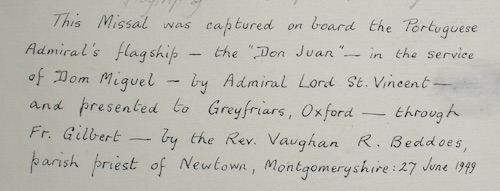 This Missal was captured on board the Portuguese
Admiral's flagship — the "Don Juan" — in the service
of Dom Miguel — by Admiral Lord St. Vincent —
and presented to Greyfriars, Oxford — through
Fr. Gilbert — by the Rev. Vaughan R. Beddoes,
parish priest of Newtown, Montgomeryshire: 27 June 1949